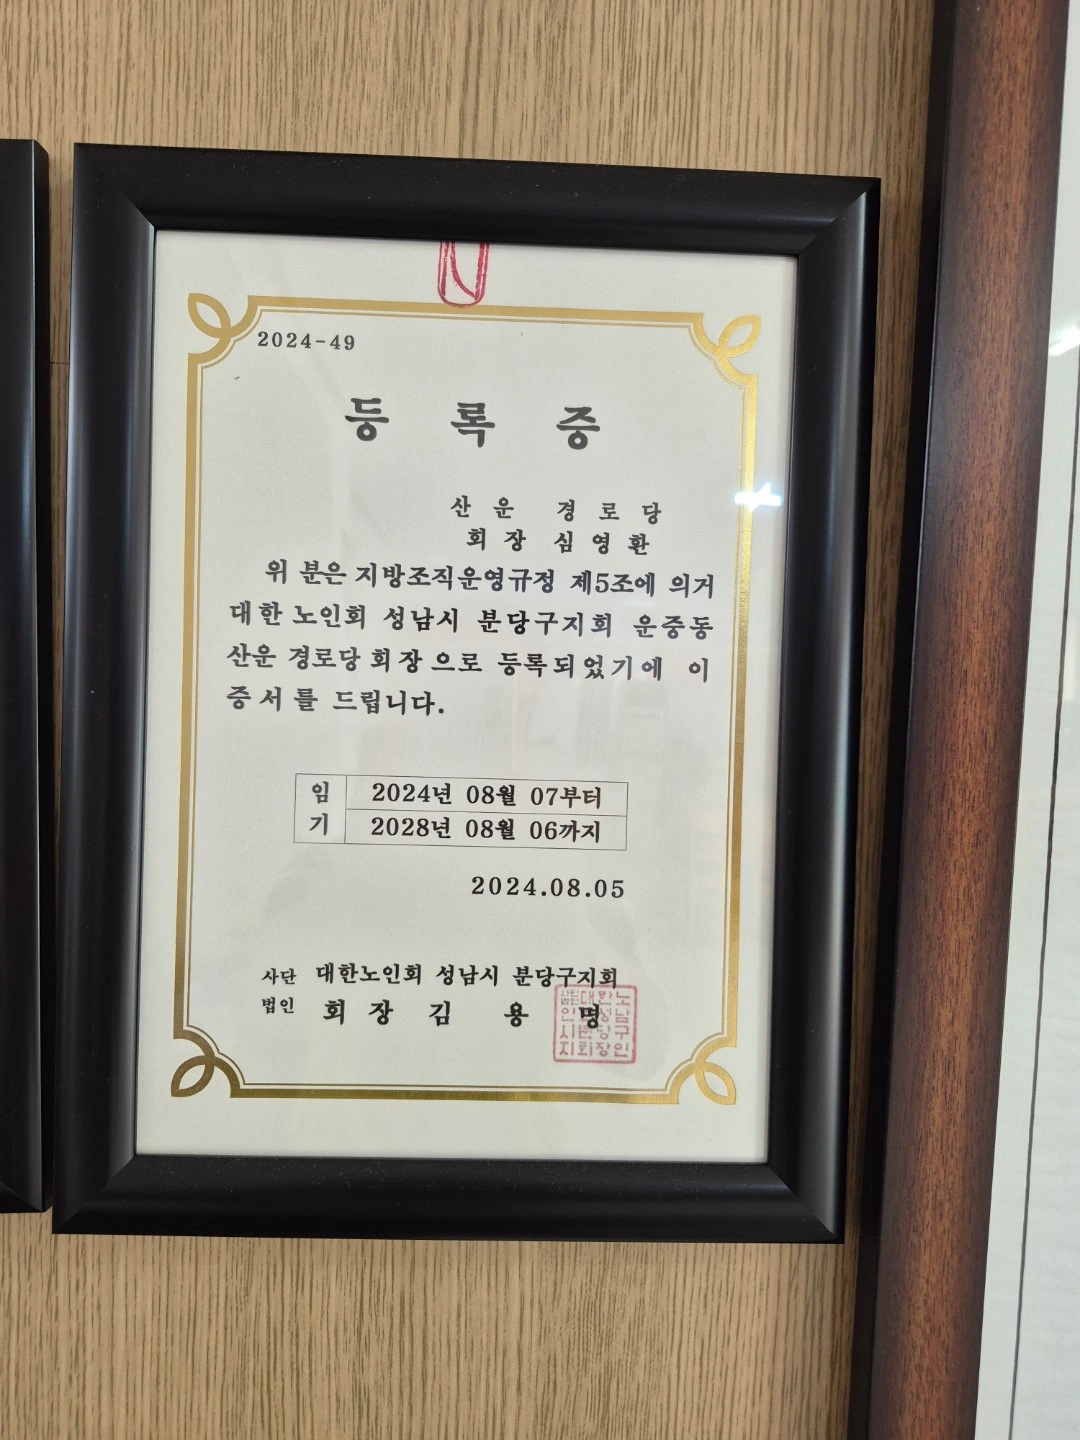 2024-49
등 록 증
산 운 경 로 당
회 장 심 영 환
위 분은 지방조직운영규정 제5조에 의거
대한 노인회 성남시 분당구지회 운중동
산운 경로당 회장으로 등록되었기에 이
증서를 드립니다.
임 2024년 08월 07부터
기 2028년 08월 06까지
2024.08.05
사단 대한노인회 성남시 분당구지회
법인 회 장 김 용 명